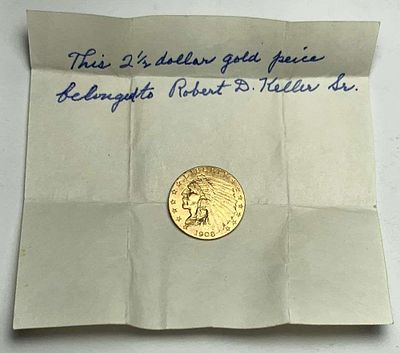 This 2 1/2 dollar gold peice
belonged to Robert D. Keller Sr.
1908